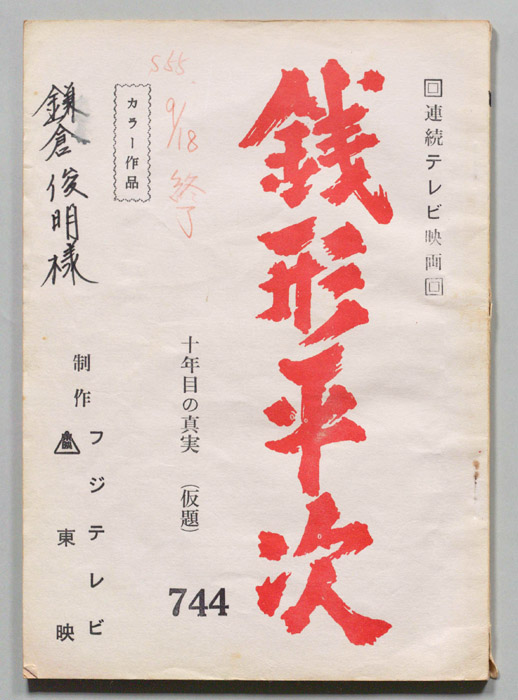 連続テレビ映画
銭形平次
S55.
9/18
終了
十年目の真実（仮題）
744
カラー作品
鎌倉俊明様
制作
フジテレビ
東映